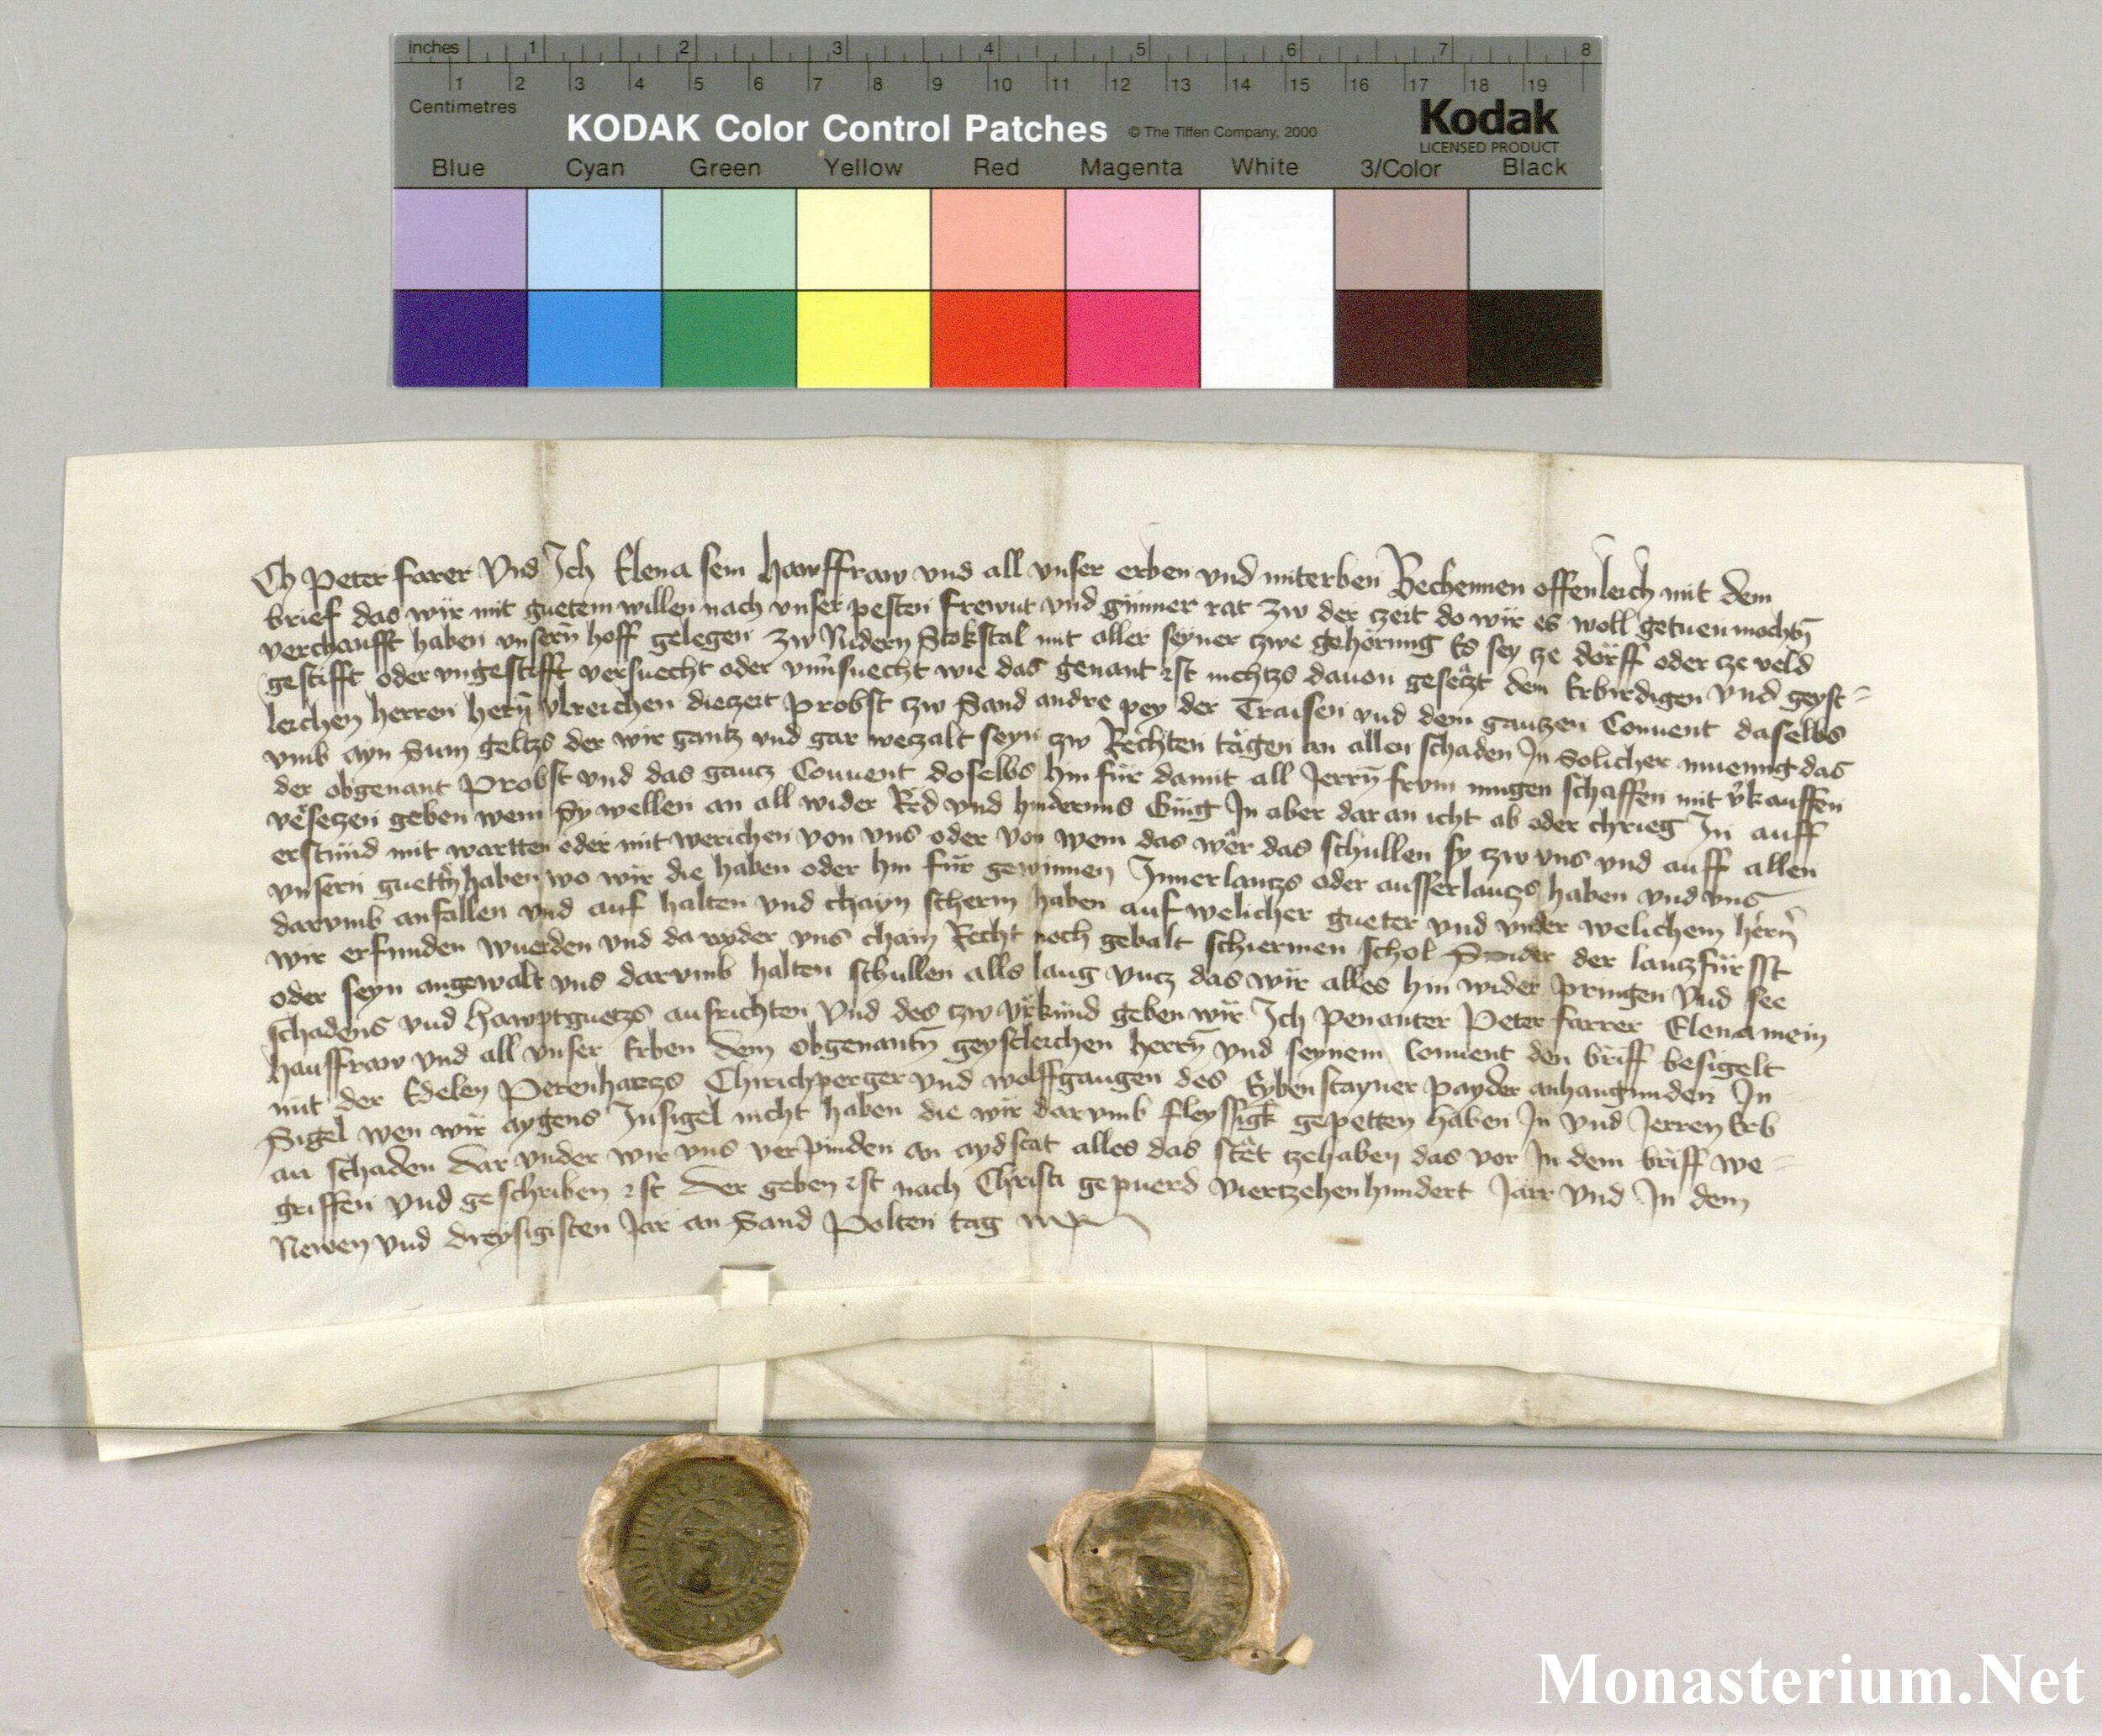 inches 1 2 3 4 5 6 7 8
1 2 3 4 5 6 7 8 9 10 11 12 13 14 15 16 17 18 19
Centimetres
KODAK Color Control Patches © The Tiffen Company, 2000 Kodak
LICENSED PRODUCT
Blue Cyan Green Yellow Red Magenta White 3/Color Black
Ich Peter farer Vnd Ich Elena sein hawsfraw vnd all vnser erben vnd miterben Bechennen offenleich mit dem
brief das wir mit guetem willen nach vnser pesten frewnt vnd günner rat zw der czeit do wir es woll getuen mochtn̄
verchaufft haben vnsern̄ hoff gelegen zw Nidern Stokstal mit aller seyner zwe gehörung Es sey ze dorff oder ze veld
gestifft oder vngestifft versuecht oder vnuersuecht wie das genant ist nichtzs dauon gesetzt dem Erbirdigen vnd geyst=
leichen herren hern̄ vlreichen diezeit Probst zw Sand andre pey der Traisen vnd dem ganzen Conuent daselbs
vmb ayn Sum geltzs der wir gantz vnd gar weczalt seyn zw Rechten tägen an allen schaden In Solicher mueung das
der obgenant Probst vnd das gancz Conuent doselbs hin für damit all Jerrn̄ frum mugen schaffen mit v̊kauffen
v̊seczen geben wem Sy wellen an all wider Red vnd hindernus Gieng In aber dar an icht ab oder chrieg In auff
erstünd mit wartten oder mit werichen von vns oder von wem das wer das schullen sy zw vns vnd auff allen
vnsern guettn̄ haben wo wir die haben oder hin für gewinnen Innerlantzs oder ausserlantzs haben vnd vns
darvmb anfallen vnd auf halten vnd chayn scherm haben auf welicher gueter vnd vnder welichem hern̄
wir erfunden wuerden vnd da wyder vns chain Recht noch gebalt schiermen schol Sunder der lantzfürsst
oder seyn angewalt vns darvmb halten schullen alls lang vncz das wir alles hin wider pringen Vnd see
schadens vnd hawptguetzs aufrichten Vnd des zw vrkünd geben wir Ich penanter Peter farrer Elena mein
hausfraw vnd all vnser Erben dem obgenantn̄ geystleichen herrn̄ vnd seynem Conuent den briff besigelt
mit der Edelen Perenhartzs Chirichperger vnd wolffgangen des Eybenstayner payder anhangunden In
Sigel wen wir aygens Insigel nicht haben die wir darvmb fleyssigk gepetten haben In vnd Jerren Erb
an schaden Dar vnder wir vns verpinden an aydstat alles das stet zehaben das vor In dem briff we=
griffen vnd geschriben ist Der geben ist nach Christi gepuerd Viertzehenhundert Jarr Vnd In dem
Newen vnd dreysigisten Jar an Sand Polten tag
Monasterium.Net